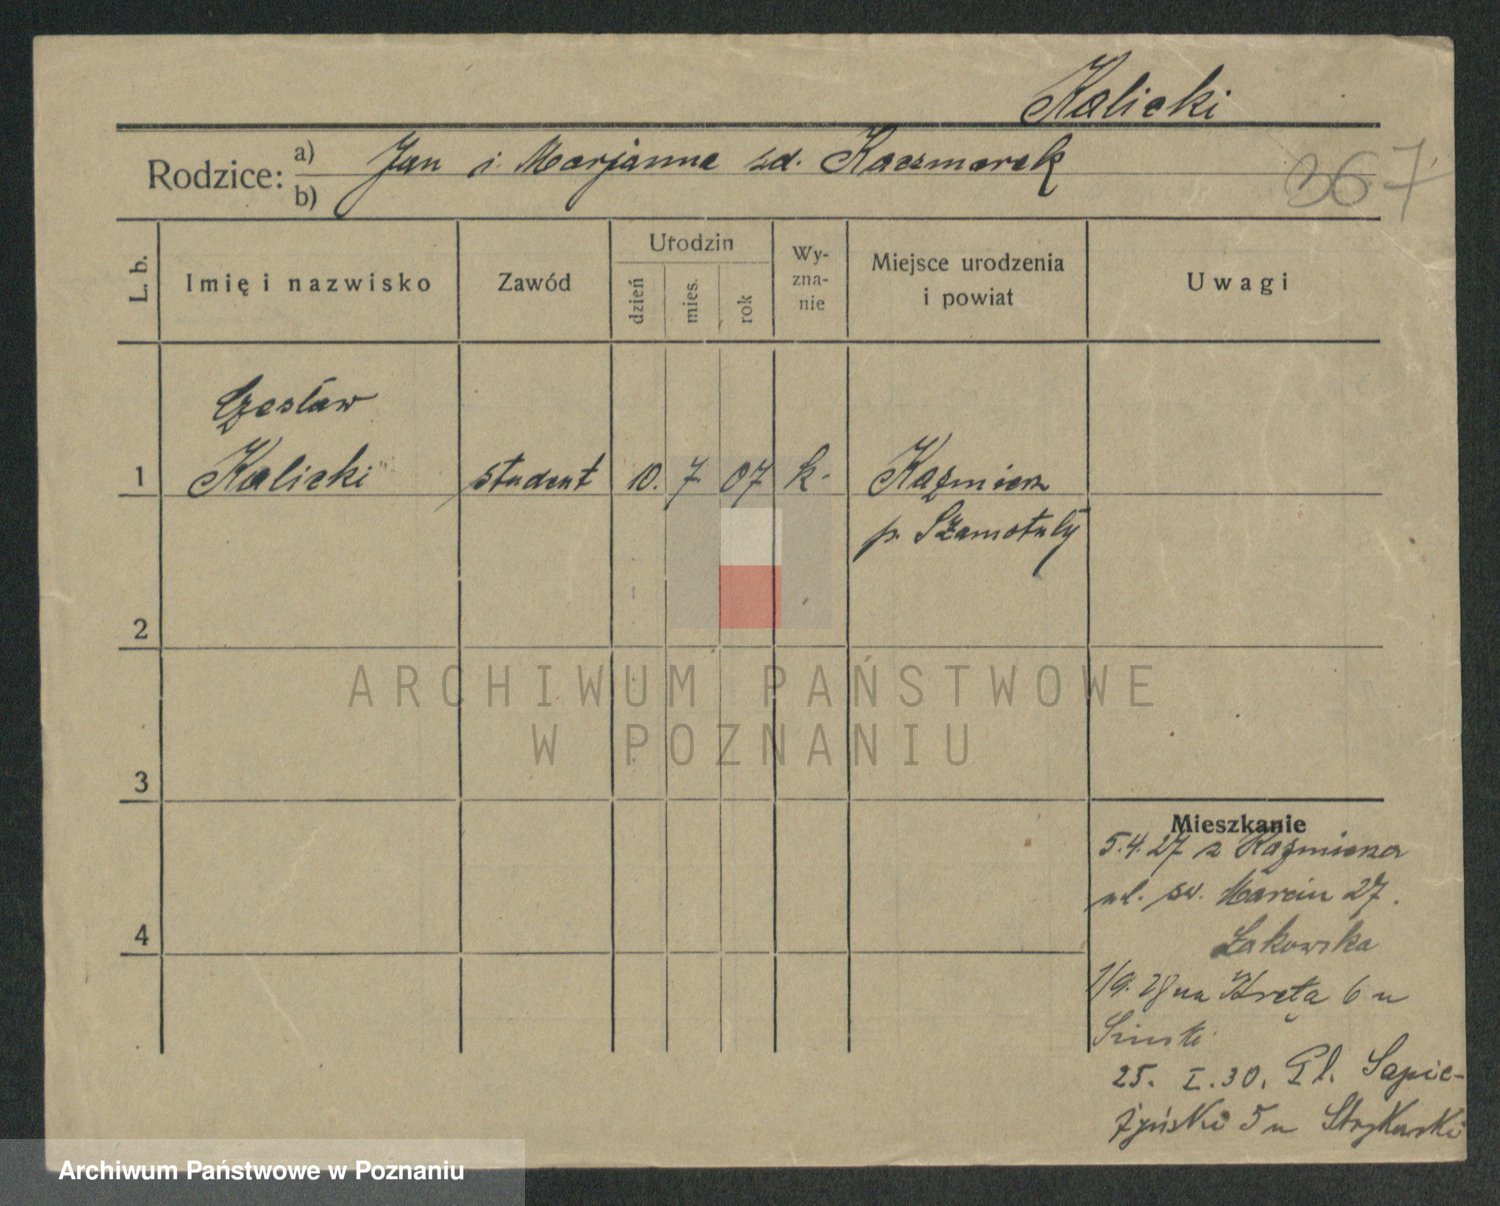 Kalicki
Rodzice: a) Jan i Marjanna zd. Kaczmarek
b)
367
L. b.
Imię i nazwisko
Zawód
Urodzin
dzień
mies.
rok
Wy-
zna-
nie
Miejsce urodzenia
i powiat
Uwagi
Czesław
1 Kalicki student 10. 7 07 k. Kaźmierz
p. Szamotuły
2
3
4
ARCHIWUM PAŃSTWOWE
W POZNANIU
Mieszkanie
5.4.27 z Kaźmierza
ul. św. Marcin 27.
Łakowska
1/9. 28 na Krętą 6 u
25. I. 30. Pl. Sapie-
żyński 5 u
Archiwum Państwowe w Poznaniu